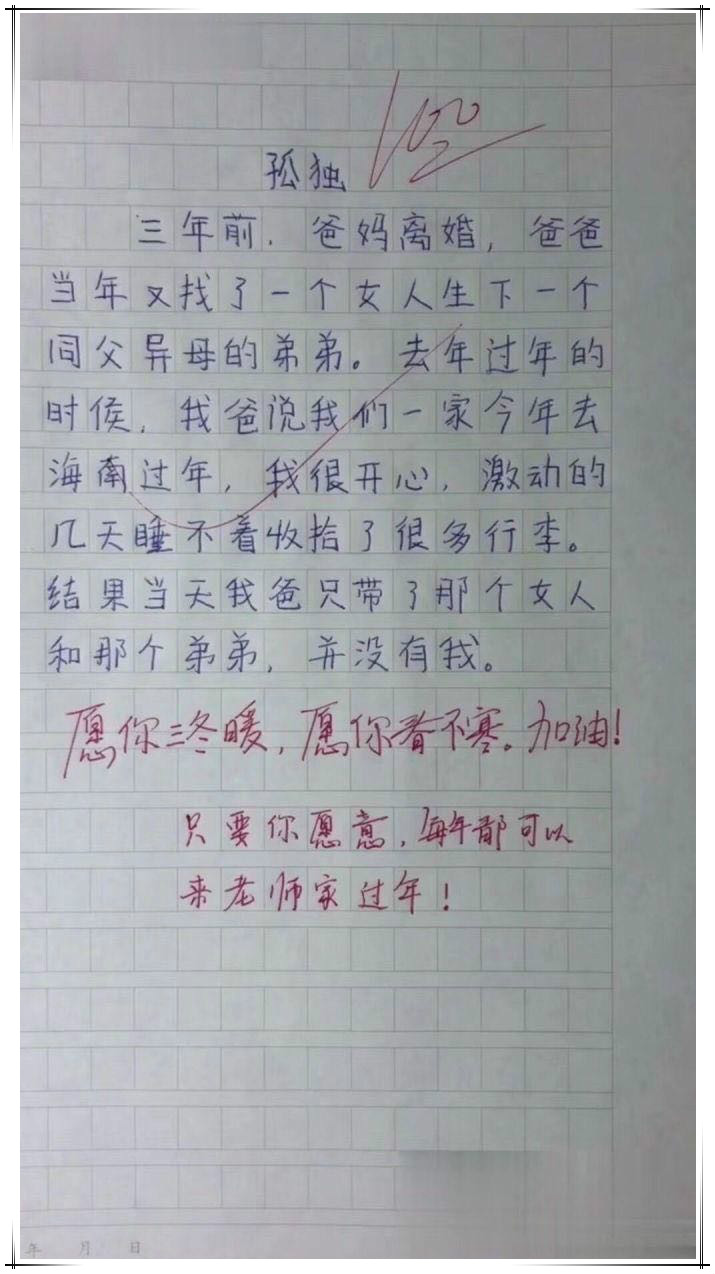 100
孤独
三年前，爸妈离婚，爸爸
当年又找了一个女人生下一个
同父异母的弟弟。去年过年的
时侯，我爸说我们一家今年去
海南过年，我很开心，激动的
几天睡不着收拾了很多行李。
结果当天我爸只带了那个女人
和那个弟弟，并没有我。
愿你三冬暖，愿你春不寒。加油！
只要你愿意，每年都可以
来老师家过年！
年 月 日